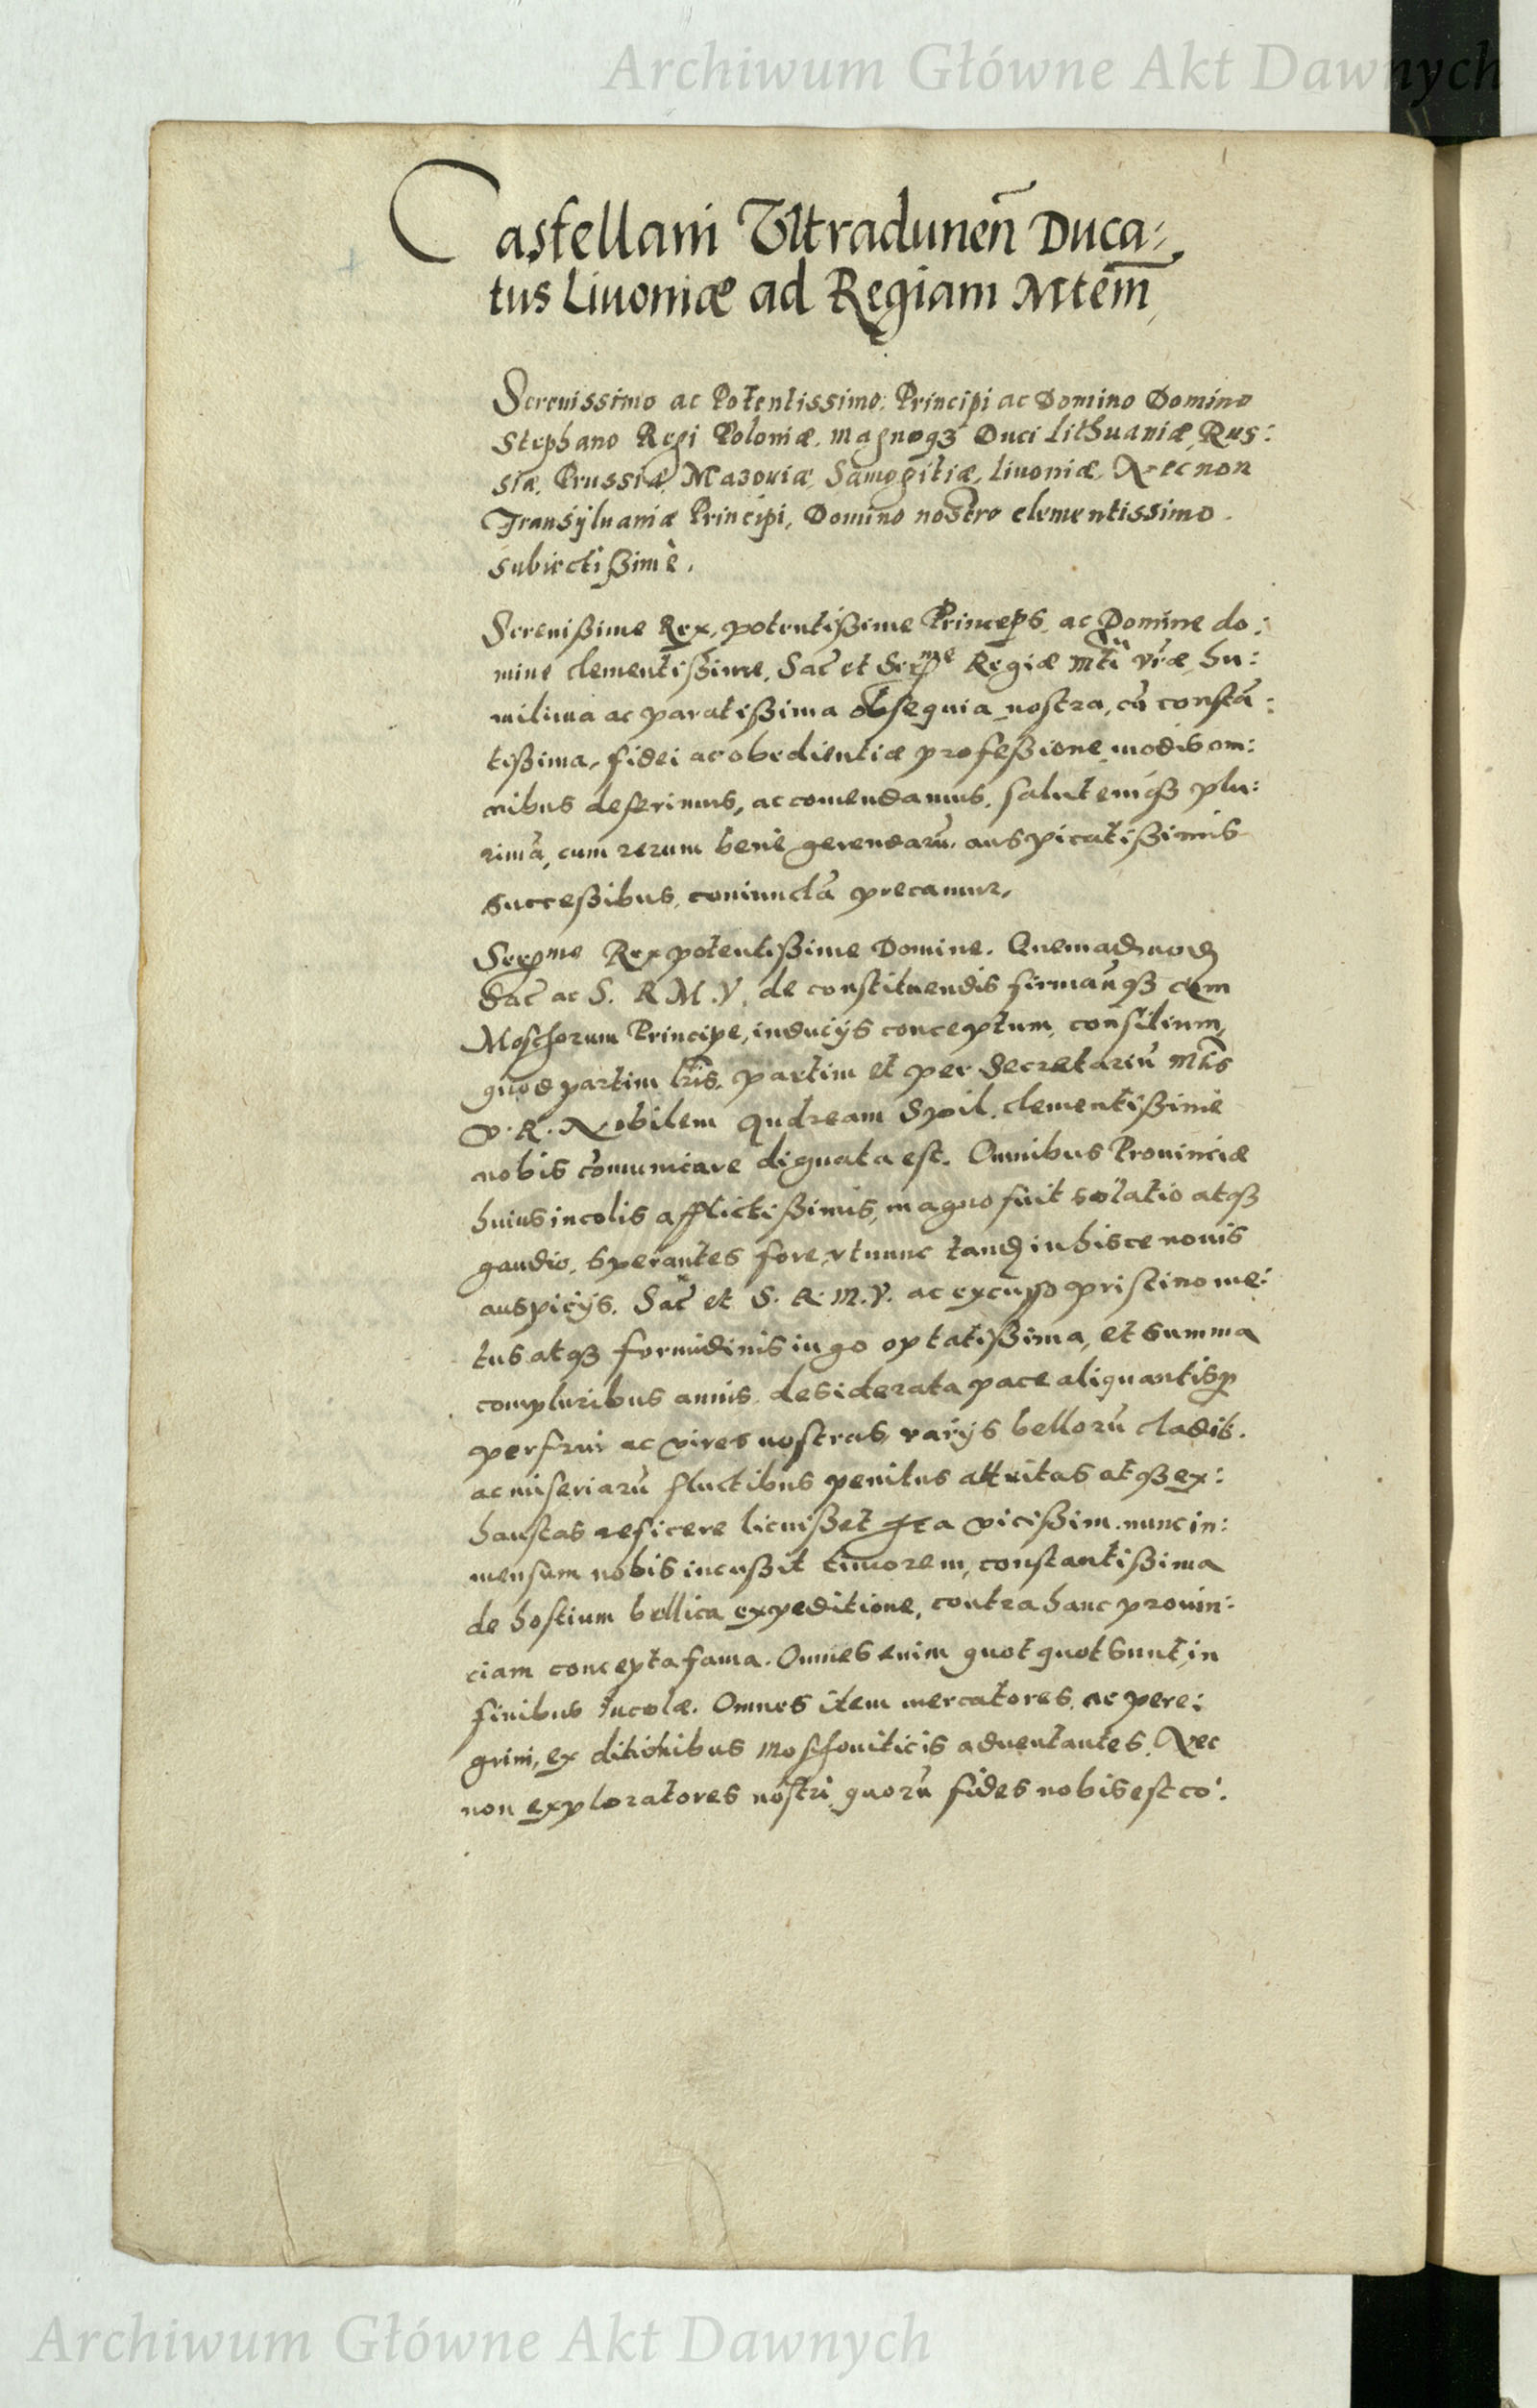 Archiwum Główne Akt Dawnych
Castellani Vltradunen̄ Duca⸗
tus Liuoniæ ad Regiam Mtem̄
Serenissimo ac Potentissimo, Principi ac Domino Domino
Stephano Regi Poloniæ, magnoqꝫ Duci Lithuaniæ, Rus:
siæ, Prussiæ, Mazoviæ, Samogitiæ, Liuoniæ, Nec non
Transijluaniæ Principi, Domino nostro clementissimo.
subiectißimè.
Serenißime Rex, potentißime Princeps, ac Domine do:
mine clementißime, Sac̄ et Serme Regiæ mti vr̄æ, hu:
milima ac paratißima obsequia nostra, cū constā:
tißima, fidei ac obedientiæ profeßione, modis om:
nibus deferimus, ac comendamus, salutemqꝫ plu:
rimā, cum rerum benè gerendarū auspicatißimis
succeßibus, coniunctā precamur,
Serme Rex potentißime Domine. Quemadmodꝫ
Sac̄ ac S. R. M. V. de constituendis firmanqꝫ cum
Moschorum Principe, inducijs conceptum, consilium,
quod partim lr̄is, partim et per Secretariū mtis
v. R. Nobilem Andream Spil, clementißime
nobis cōmunicare dignata est. Omnibus Prouinciæ
huius incolis afflictißimis, magno fuit solatio atqꝫ
gaudio, sperantes fore, vt nunc tandꝫ in hisce nouis
auspicijs. Sac̄ et S. R. M. V. ac excusso pristino me:
tus atqꝫ formidinis iugo optatißima, et summa
compluribus annis desiderata pace aliquantisꝑ
perfrui ac vires nostras, varijs bellorū cladib.
ac miseriarū fluctibus penitus attritas atqꝫ ex:
haustas reficere licuißet Ita vicißim nunc in:
mensum nobis incußit timorem, constantißima
de hostium bellica expeditione, contra hanc prouin:
ciam concepta fama. Omnes enim quot quot sunt, in
finibus Incolæ. Omnes item mercatores, ac pere:
grini, ex ditionibus Moschouiticis aduentantes, Nec
non exploratores nostri quorū fides nobis est co:
Archiwum Główne Akt Dawnych